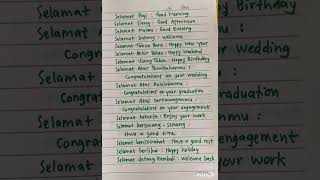 Selamat Pagi : Good Morning
Selamat Siang : Good Afternoon
Selamat Malam : Good Evening
Selamat Datang : Welcome
Selamat Tahun Baru : Happy New year
Selamat Akhir Pekan : Happy Weekend
Selamat Ulang Tahun : Happy Birthday
Selamat Atas Pernikahanmu :
Congratulations on your wedding
Selamat Atas Kelulusanmu :
Congratulations on your graduation
Selamat Atas Pertunanganmu
Congratulations on your engagement
Selamat bekerja : Enjoy your work
Selamat bersenang - senang
Have a good time
Selamat beristirahat : Have a good rest
Selamat berlibur : Happy holiday
Selamat datang kembali : Welcome back